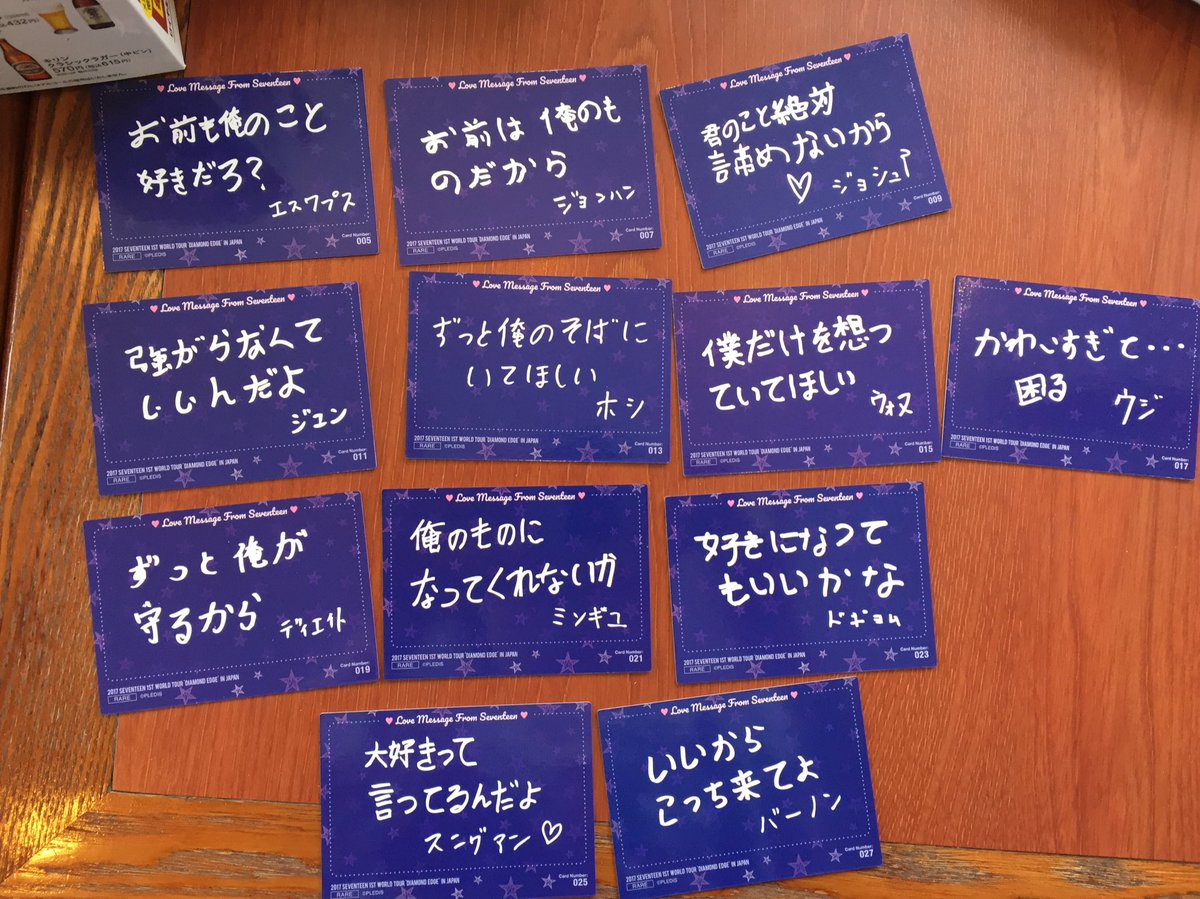 キリン
クラシックラガー(中ビン)
570円(税込615円)
Love Message From Seventeen
お前も俺のこと
好きだろ?
エスクプス
Card Number:
005
2017 SEVENTEEN 1ST WORLD TOUR 'DIAMOND EDGE' IN JAPAN
RARE ©PLEDIS
Love Message From Seventeen
お前は俺のも
のだから
ジョンハン
Card Number:
007
2017 SEVENTEEN 1ST WORLD TOUR 'DIAMOND EDGE' IN JAPAN
RARE ©PLEDIS
Love Message From Seventeen
君のこと絶対
諦めないから
♡ ジョシュア
Card Number:
009
2017 SEVENTEEN 1ST WORLD TOUR 'DIAMOND EDGE' IN JAPAN
RARE ©PLEDIS
Love Message From Seventeen
強がらなくて
いいんだよ
ジュン
Card Number:
011
2017 SEVENTEEN 1ST WORLD TOUR 'DIAMOND EDGE' IN JAPAN
RARE ©PLEDIS
Love Message From Seventeen
ずっと俺のそばに
いてほしい
ホシ
Card Number:
013
2017 SEVENTEEN 1ST WORLD TOUR 'DIAMOND EDGE' IN JAPAN
RARE ©PLEDIS
Love Message From Seventeen
僕だけを想っ
ていてほしい
ウォヌ
Card Number:
015
2017 SEVENTEEN 1ST WORLD TOUR 'DIAMOND EDGE' IN JAPAN
RARE ©PLEDIS
Love Message From Seventeen
かわいすぎて...
困る
ウジ
Card Number:
017
2017 SEVENTEEN 1ST WORLD TOUR 'DIAMOND EDGE' IN JAPAN
RARE ©PLEDIS
Love Message From Seventeen
ずっと俺が
守るから
ディエイト
Card Number:
019
2017 SEVENTEEN 1ST WORLD TOUR 'DIAMOND EDGE' IN JAPAN
RARE ©PLEDIS
Love Message From Seventeen
俺のものに
なってくれないか
ミンギュ
Card Number:
021
2017 SEVENTEEN 1ST WORLD TOUR 'DIAMOND EDGE' IN JAPAN
RARE ©PLEDIS
Love Message From Seventeen
好きになって
もいいかな
ドギョム
Card Number:
023
2017 SEVENTEEN 1ST WORLD TOUR 'DIAMOND EDGE' IN JAPAN
RARE ©PLEDIS
Love Message From Seventeen
大好きって
言ってるんだよ
スングァン♡
Card Number:
025
2017 SEVENTEEN 1ST WORLD TOUR 'DIAMOND EDGE' IN JAPAN
RARE ©PLEDIS
Love Message From Seventeen
いいから
こっち来てよ
バーノン
Card Number:
027
2017 SEVENTEEN 1ST WORLD TOUR 'DIAMOND EDGE' IN JAPAN
RARE ©PLEDIS